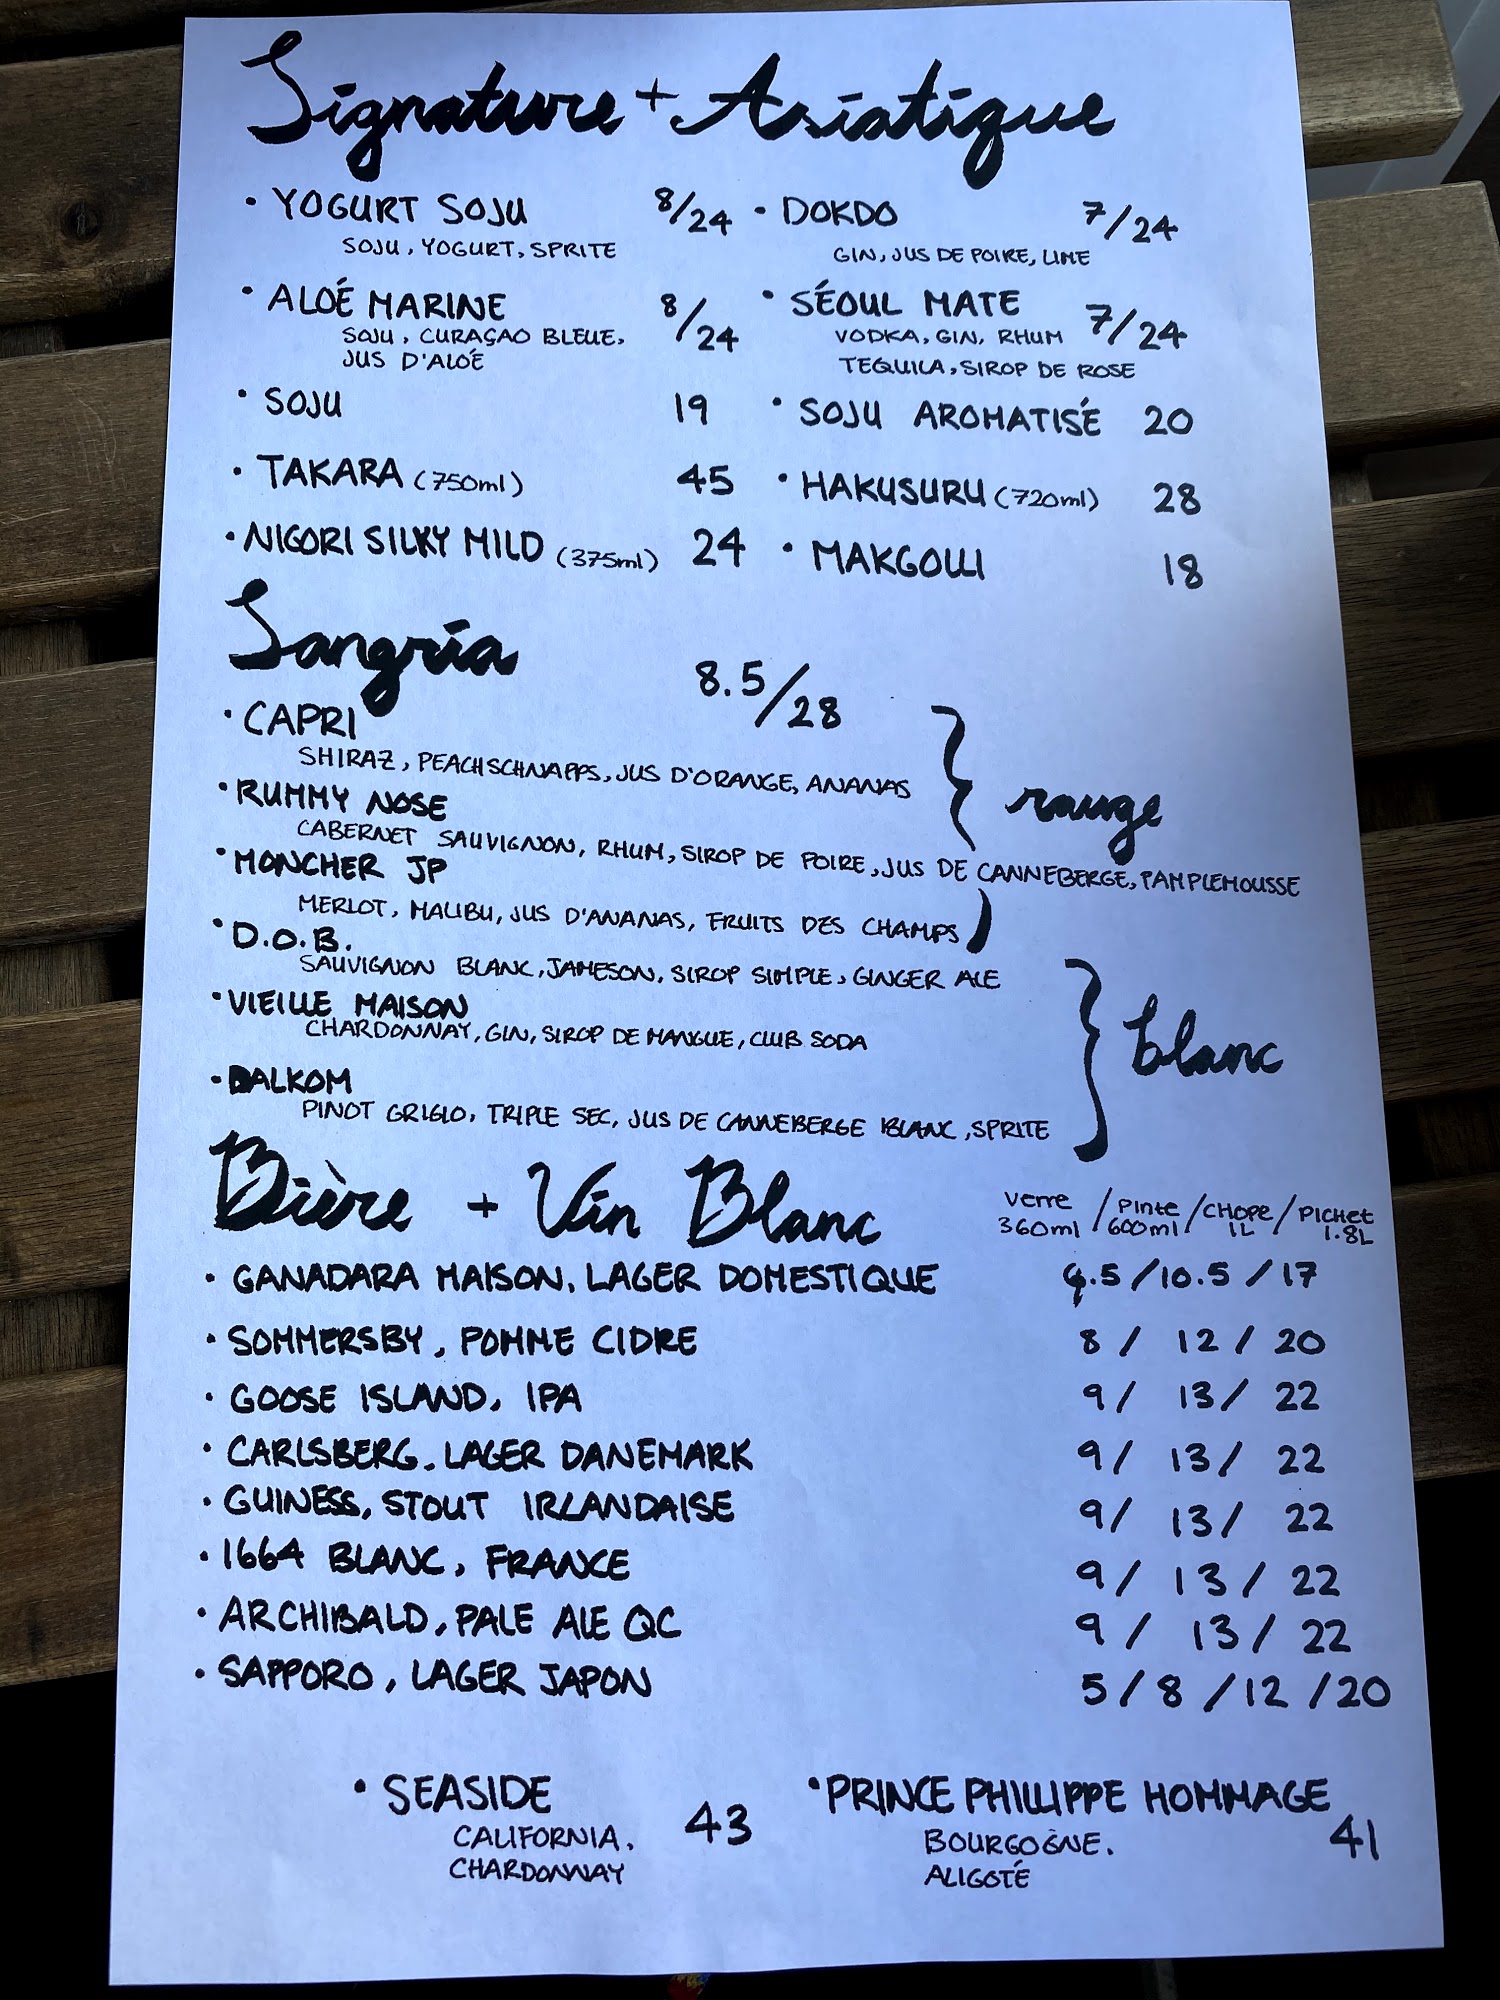 Signature + Asiatique
• YOGURT SOJU 8/24
SOJU, YOGURT, SPRITE
• DOKDO 7/24
GIN, JUS DE POIRE, LIME
• ALOÉ MARINE 8/24
SOJU, CURAÇAO BLEUE,
JUS D'ALOÉ
• SÉOUL MATE 7/24
VODKA, GIN, RHUM
TEQUILA, SIROP DE ROSE
• SOJU 19
• SOJU AROMATISÉ 20
• TAKARA (750ml) 45
• HAKUSURU (720ml) 28
• NIGORI SILKY MILD (375ml) 24
• MAKGOLLI 18
Sangria 8.5/28
• CAPRI
SHIRAZ, PEACHSCHNAPPS, JUS D'ORANGE, ANANAS
rouge
• RUMMY NOSE
CABERNET SAUVIGNON, RHUM, SIROP DE POIRE, JUS DE CANNEBERGE, PAMPLEMOUSSE
• MONCHER JP
MERLOT, MALIBU, JUS D'ANANAS, FRUITS DES CHAMPS
• D.O.B.
SAUVIGNON BLANC, JAMESON, SIROP SIMPLE, GINGER ALE
• VIEILLE MAISON
CHARDONNAY, GIN, SIROP DE MANGUE, CLUB SODA
blanc
• DALKOM
PINOT GRIGIO, TRIPLE SEC, JUS DE CANNEBERGE BLANC, SPRITE
Bière + Vin Blanc
verre / Pinte / CHOPE / PICHet
360ml 600ml 1L 1.8L
• GANADARA MAISON, LAGER DOMESTIQUE .5 / 10.5 / 17
• SOMMERSBY, POMME CIDRE 8 / 12 / 20
• GOOSE ISLAND, IPA 9 / 13 / 22
• CARLSBERG, LAGER DANEMARK 9 / 13 / 22
• GUINESS, STOUT IRLANDAISE 9 / 13 / 22
• 1664 BLANC, FRANCE 9 / 13 / 22
• ARCHIBALD, PALE ALE QC 9 / 13 / 22
• SAPPORO, LAGER JAPON 5 / 8 / 12 / 20
• SEASIDE 43
CALIFORNIA.
CHARDONNAY
• PRINCE PHILLIPPE HOMMAGE 41
BOURGOGNE.
ALIGOTÉ